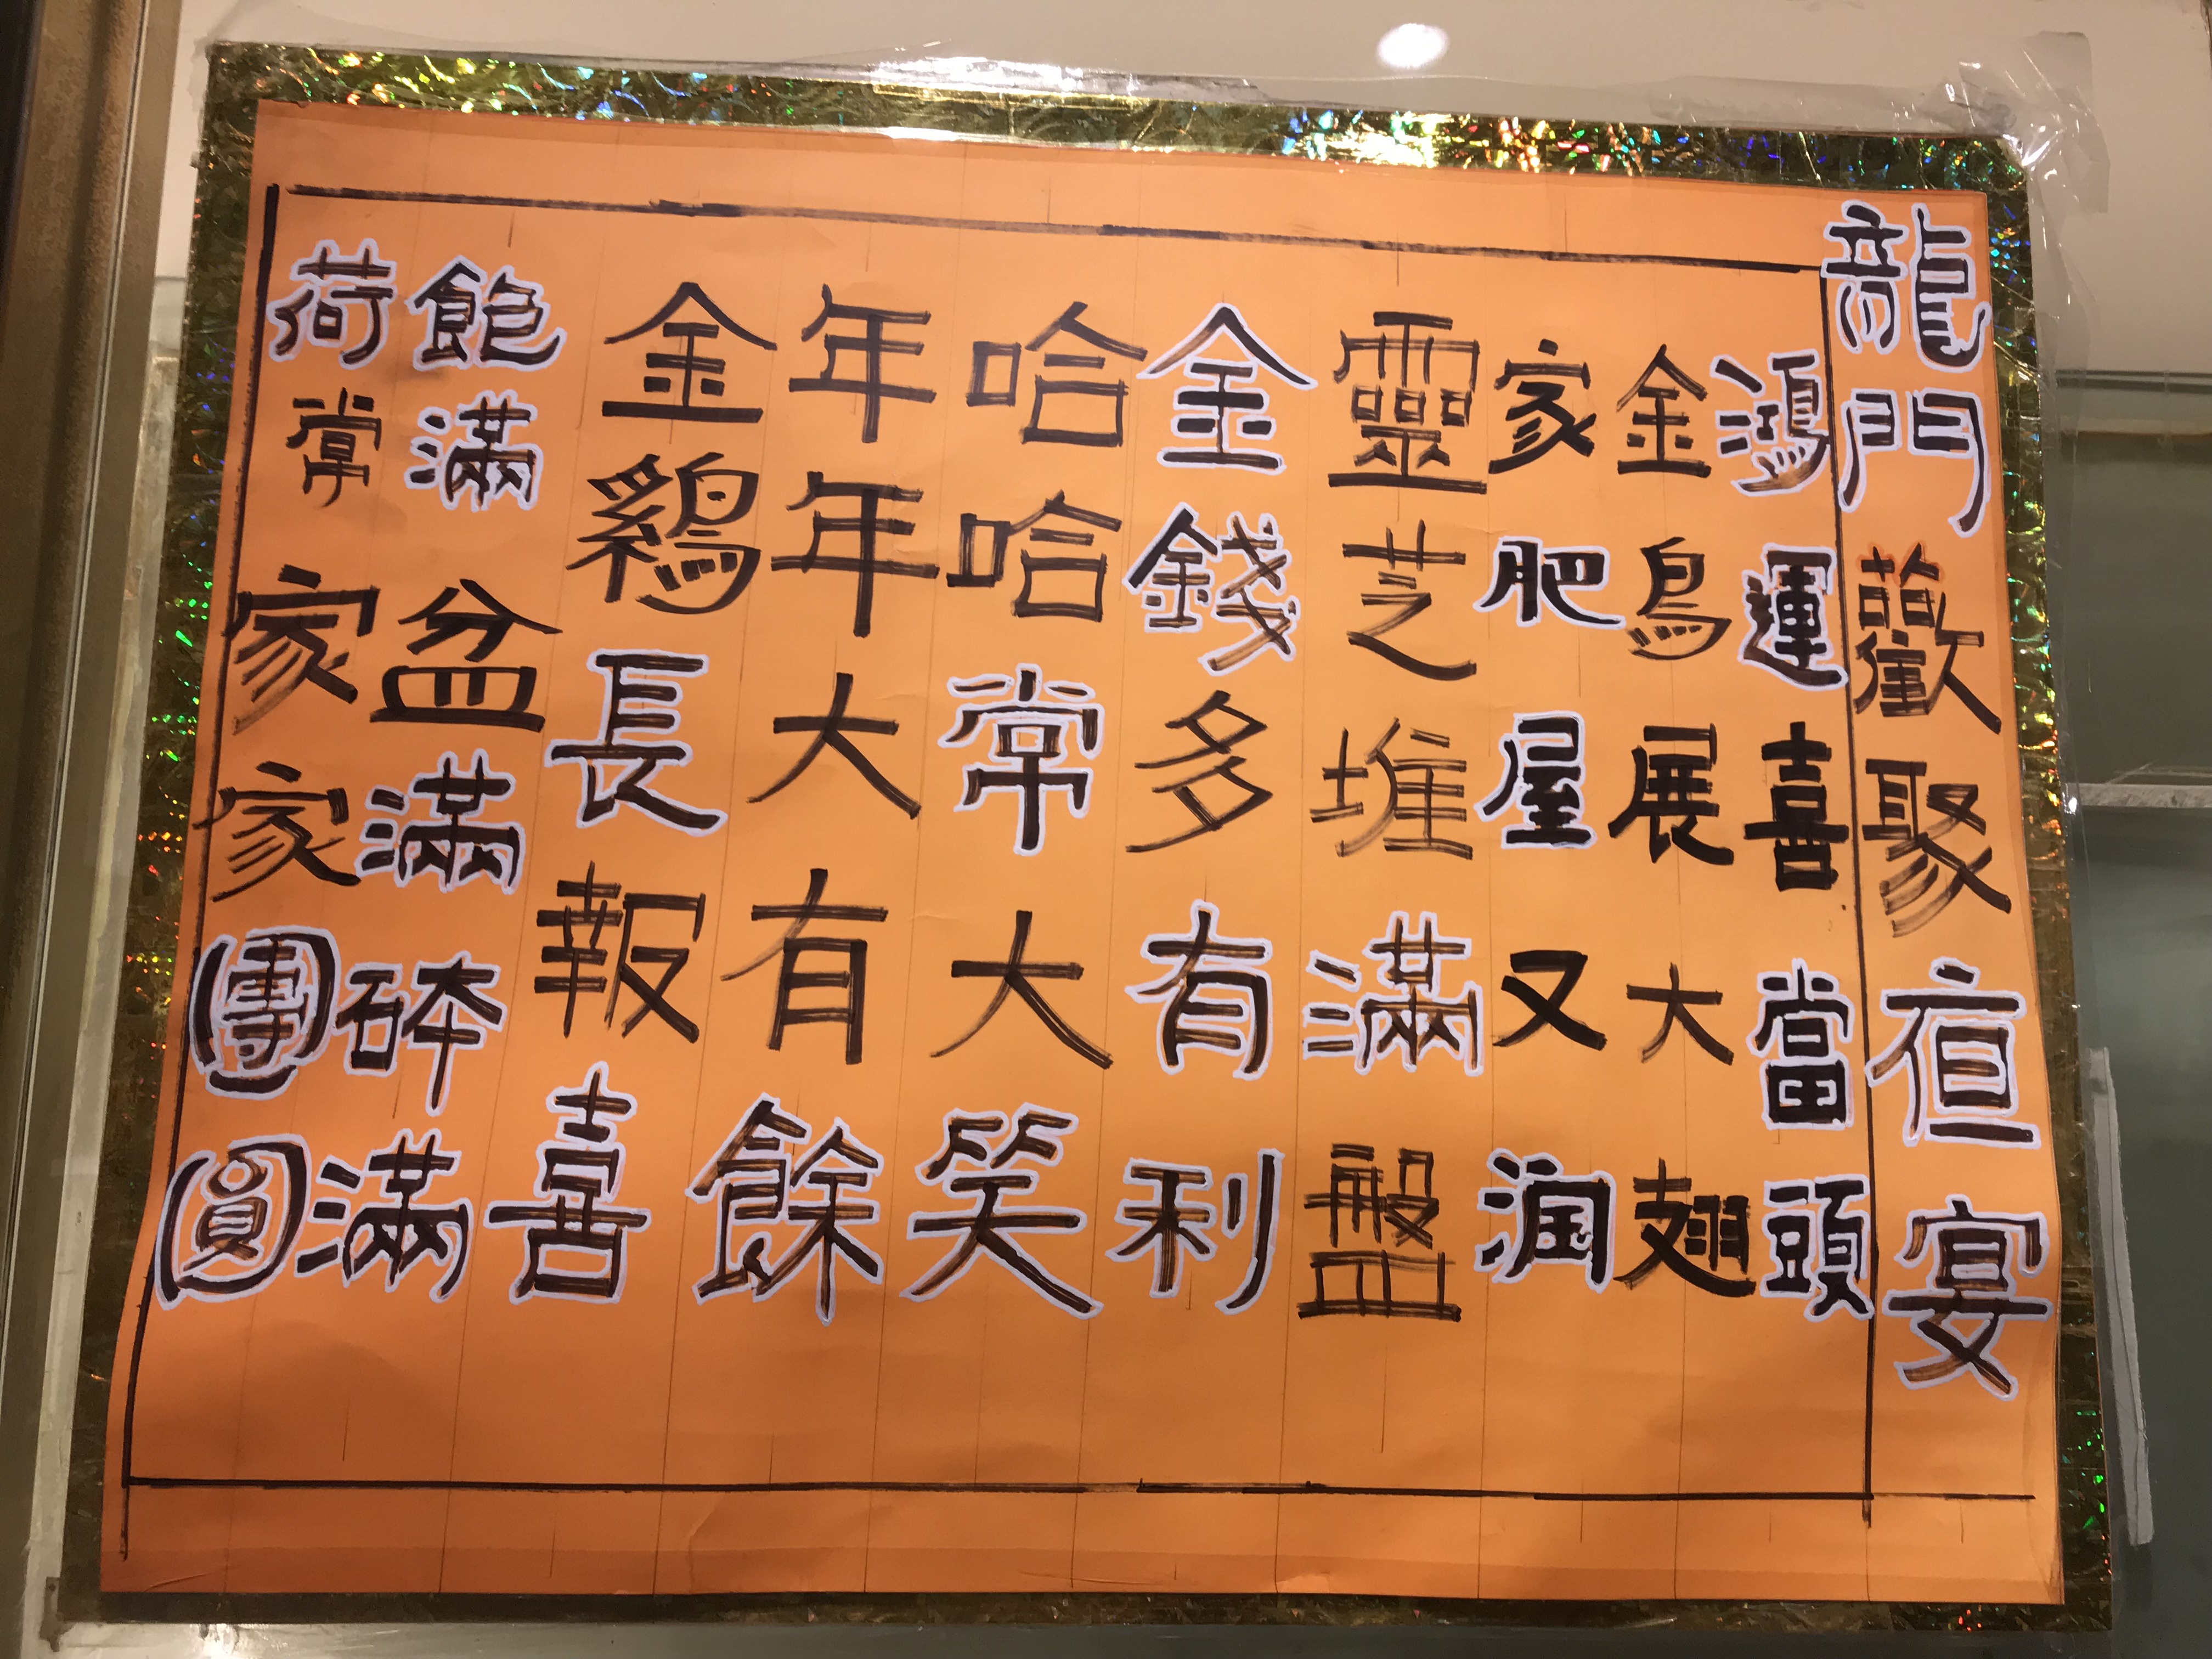 龍門歡聚宴
鴻運喜當頭
金鳥展大翅
家肥屋又润
靈芝堆滿盤
金錢多有利
哈哈常大笑
年年大有餘
金鷄長報喜
飽滿盆滿砵滿
荷掌家家團圓